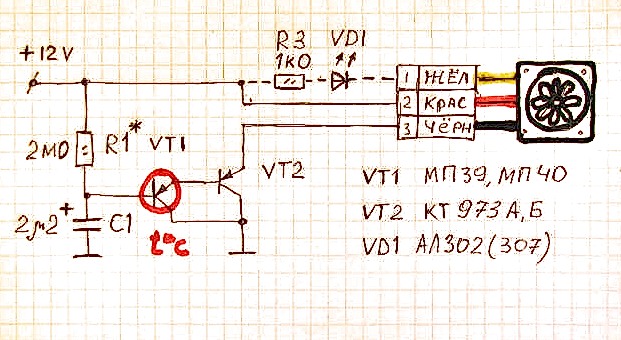 +12V
R3 VD1
1kΩ
1 ЖЁЛ
2 КРАС
3 ЧЁРН
2MΩ R1* VT1
VT2
2µ2 + C1
t°c
VT1 МП39, МП40
VT2 КТ973А,Б
VD1 АЛ302(307)